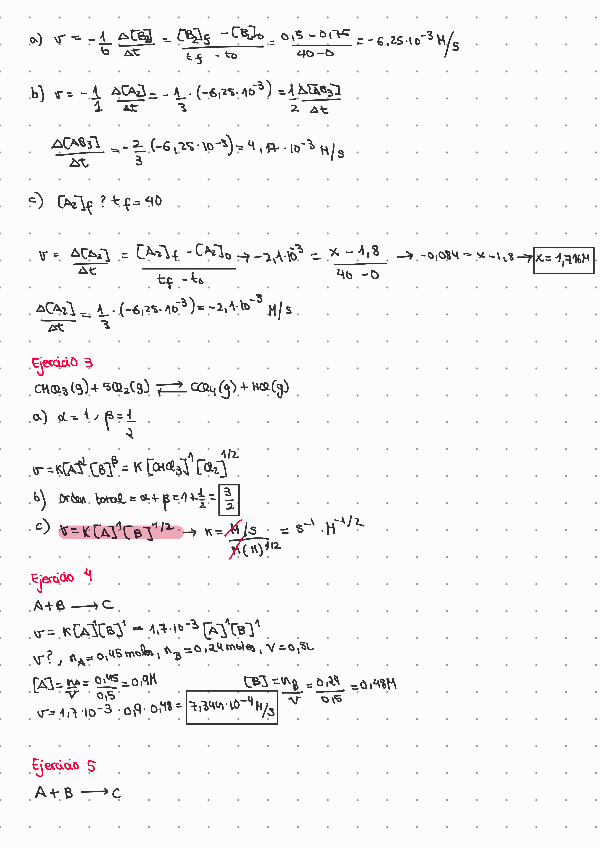 a) v = -1/6 Δ[B2]/Δt = [B2]f - [B2]0 / tf - t0 = 0,5 - 0,75 / 40 - 0 = -6,25·10⁻³ M/s
b) v = -1/1 Δ[A2]/Δt = -1/3 · (-6,25·10⁻³) = 1/2 Δ[AB3]/Δt
Δ[AB3]/Δt = -2/3 (-6,25·10⁻³) = 4,17·10⁻³ M/s
c) [A2]f ? tf = 40
v = Δ[A2]/Δt = [A2]f - [A2]0 / tf - t0 → -2,1·10⁻³ = x - 1,8 / 40 - 0 → -0,084 = x - 1,8 → x = 1,716M
Δ[A2]/Δt = 1/3 · (-6,25·10⁻³) = -2,1·10⁻³ M/s
Ejercicio 3
CHCl3(g) + Cl2(g) ⇌ CCl4(g) + HCl(g)
a) α = 1, β = 1/2
v = K[A]^α [B]^β = K [CHCl3]¹ [Cl2]^1/2
b) Orden total = α + β = 1 + 1/2 = 3/2
c) v = K[A]¹[B]^1/2 → K = M/s / M(M)^1/2 = s⁻¹ · M^-1/2
Ejercicio 4
A + B → C
v = K[A]¹[B]¹ = 1,7·10⁻³ [A]¹[B]¹
v?, nA = 0,45 moles, nB = 0,24 moles, V = 0,5L
[A] = nA/V = 0,45/0,5 = 0,9M [B] = nB/V = 0,24/0,5 = 0,48M
v = 1,7·10⁻³ · 0,9 · 0,48 = 7,344·10⁻⁴ M/s
Ejercicio 5
A + B → C